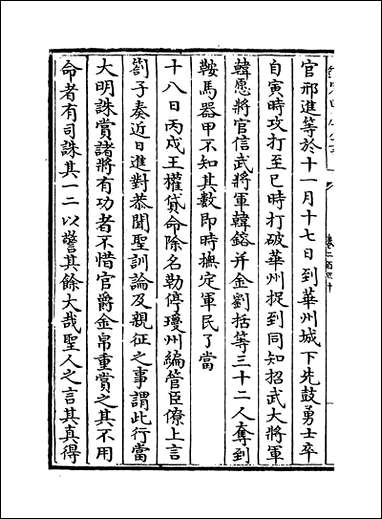 官邢進等於十一月十七日到華州城下先鼓勇士卒
自寅時攻打至巳時打破華州捉到同知招武大將軍
韓愿將官信武將軍韓鎔并金劉括等三十二人奪到
鞍馬器甲不知其數即時撫定軍民了當
十八日丙戌王權貸命除名勒停瓊州編管臣僚上言
劄子奏近日進對恭聞聖訓論及親征之事謂此行當
大明誅賞諸將有功者不惜官爵金帛重賞之其不用
命者有司誅其一二以警其餘大哉聖人之言其真得